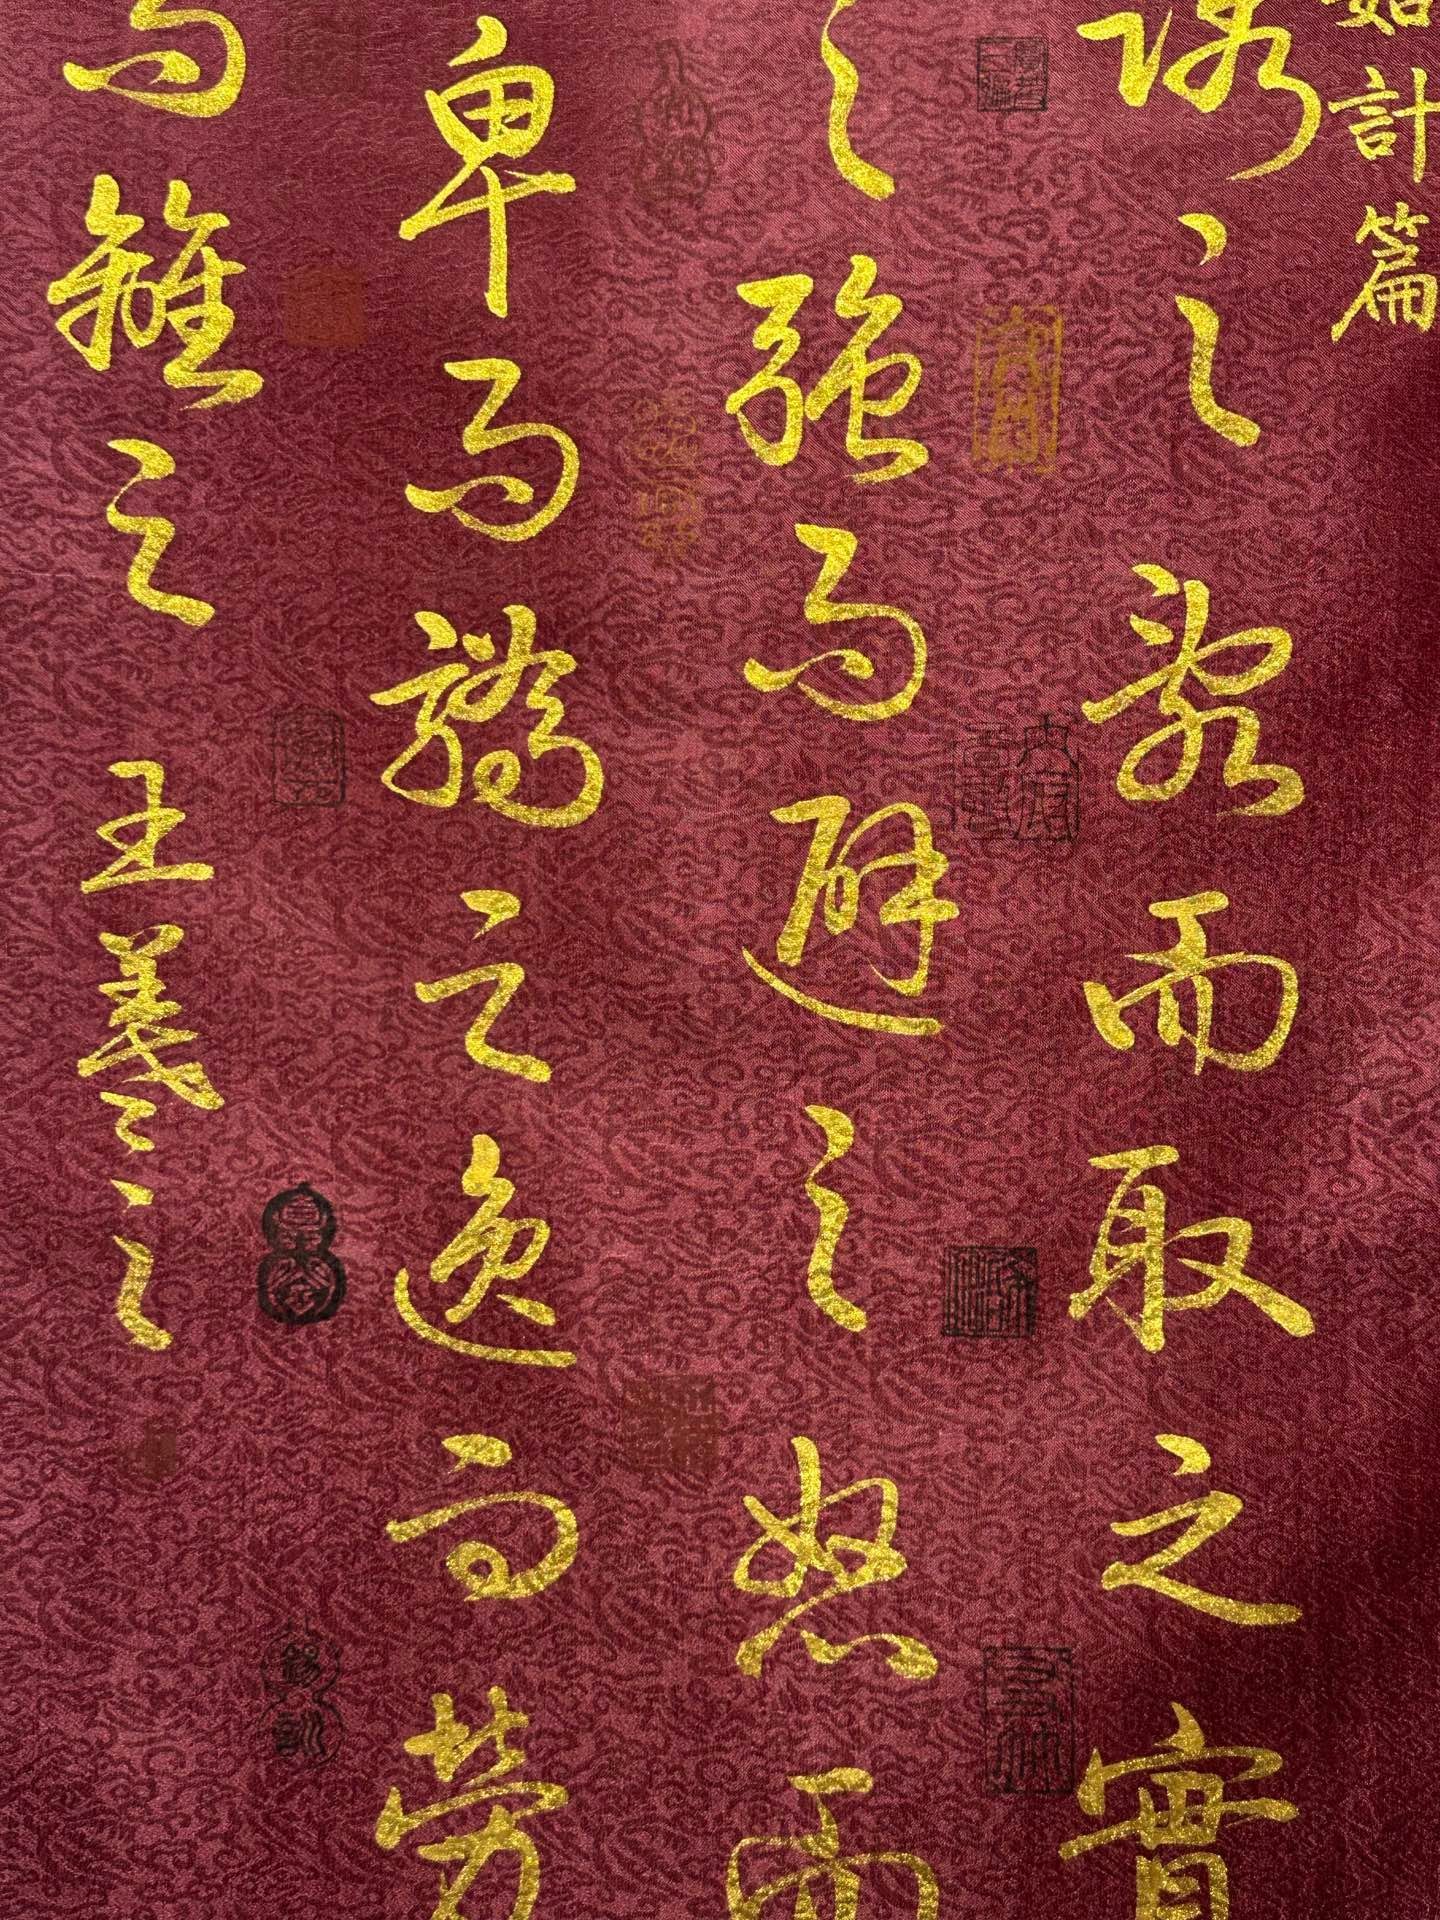 始計篇
誘之亂而取之實
之強而避之怒而
卑而驕之逸而勞
而離之 王羲之